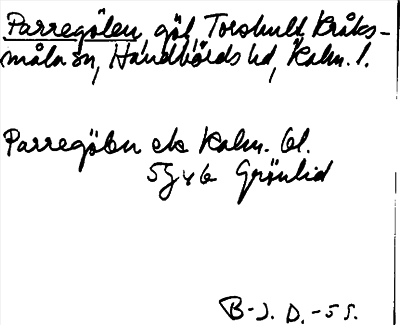 Parregölen, göl, Torshult, Kråks-
måla sn, Handbörds hd, Kalm. l.
Parregölen ek Kalm. bl.
5G y b Grönlid
B-J. D. -55.